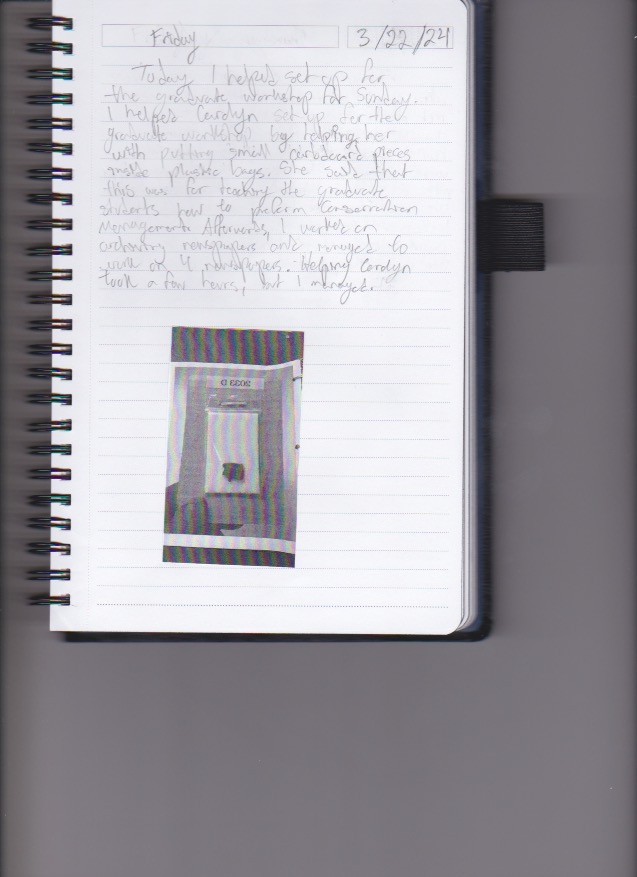 Friday
3/22/24
Today I helped set up for
the graduate workshop for Sunday.
I helped Carolyn set up for the
graduate workshop by helping her
with putting small cardboard pieces
inside plastic bags. She said that
this was for teaching the graduate
students how to preform Conservation
Management. Afterwards, I worked on
newspapers and managed to
work on 4 newspapers. Helping Carolyn
took a few hours, but I managed.
2033 D